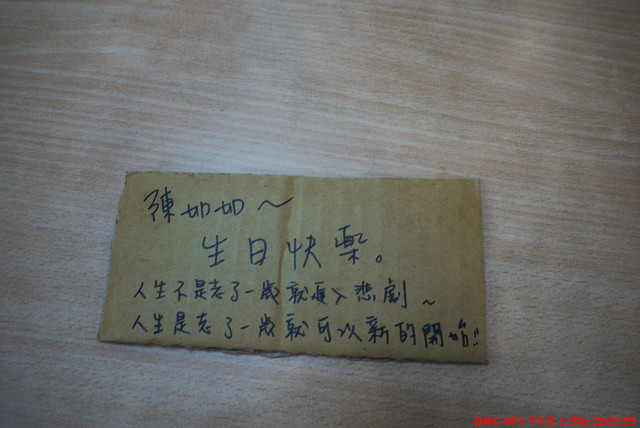 陳如如～
生日快樂。
人生不是老了一歲就更入悲劇～
人生是老了一歲就可以新的開始!!
DMC-GF1 F3.5 1/30s ISO125